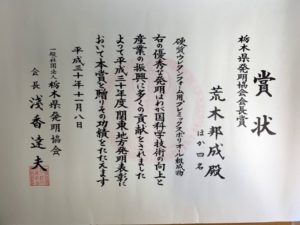 賞状
栃木県発明協会会長賞
荒木邦成殿
ほか四名
硬質ウレタンフォーム用プレミックスポリオール組成物
右の優秀な発明はわが国科学技術の向上と
産業の振興に多くの貢献をされました
よって平成三十年度関東地方発明表彰に
おいて本賞を贈りその功績をたたえます
平成三十年十一月八日
一般社団法人
栃木県発明協会
会長 淺香達夫